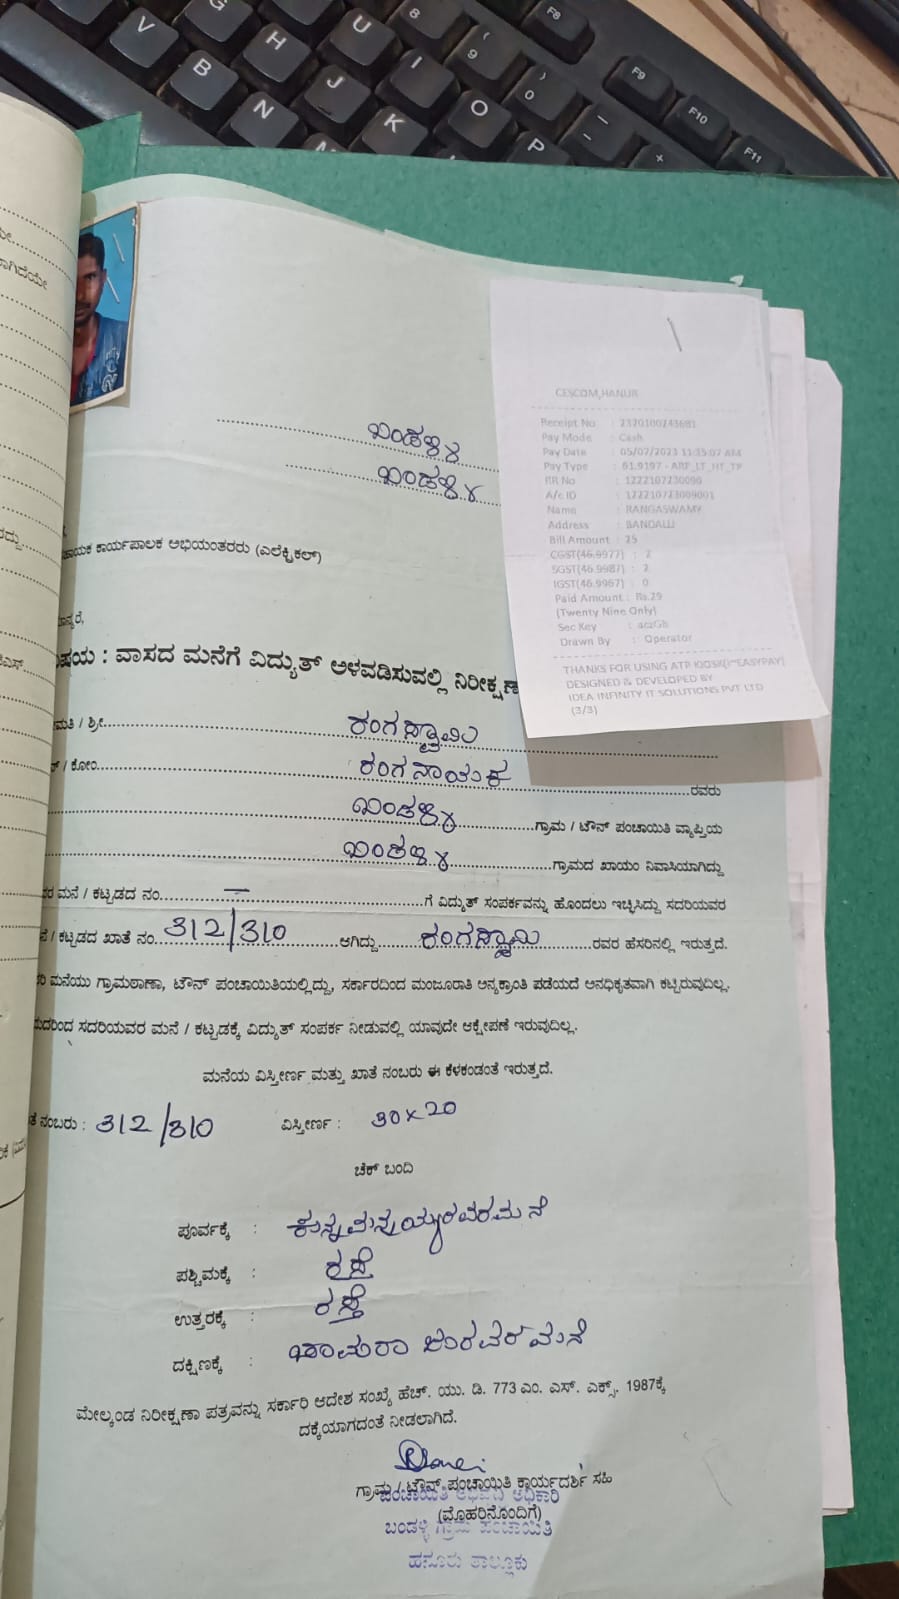 V
G
H
U
8
B
J
I
( 9
N
K
O
) 0
P
F8
F9
F10
F11
CESCOM,HANUR
Receipt No : 2320100243681
Pay Mode : Cash
Pay Date : 05/07/2023 11:35:07 AM
Pay Type : 61.9197 - ARF_LT_HT_TP
RR No : 1222107230090
A/c ID : 122210723009001
Name : RANGASWAMY
Address : BANDALLI
Bill Amount : 25
CGST(46.9977) : 2
SGST(46.9987) : 2
IGST(46.9967) : 0
Paid Amount : Rs.29
(Twenty Nine Only)
Sec Key :
Drawn By : Operator
THANKS FOR USING ATP KIOSK(I~EASYPAY)
DESIGNED & DEVELOPED BY
IDEA INFINITY IT SOLUTIONS PVT LTD
(3/3)
ಬಂಡಳ್ಳಿ
ಬಂಡಳ್ಳಿ
ಕಾರ್ಯಪಾಲಕ ಅಭಿಯಂತರರು (ಎಲೆಕ್ಟ್ರಿಕಲ್)
: ವಾಸದ ಮನೆಗೆ ವಿದ್ಯುತ್ ಅಳವಡಿಸುವಲ್ಲಿ ನಿರೀಕ್ಷಣ
/ ಶ್ರೀ ರಂಗಸ್ವಾಮಿ
/ ಕೋಂ ರಂಗನಾಯಕ ರವರು
ಬಂಡಳ್ಳಿ ಗ್ರಾಮ / ಟೌನ್ ಪಂಚಾಯಿತಿ ವ್ಯಾಪ್ತಿಯ
ಬಂಡಳ್ಳಿ ಗ್ರಾಮದ ಖಾಯಂ ನಿವಾಸಿಯಾಗಿದ್ದು
ಮನೆ / ಕಟ್ಟಡದ ನಂ. — ಗೆ ವಿದ್ಯುತ್ ಸಂಪರ್ಕವನ್ನು ಹೊಂದಲು ಇಚ್ಛಿಸಿದ್ದು ಸದರಿಯವರ
/ ಕಟ್ಟಡದ ಖಾತೆ ನಂ. 312/310 ಆಗಿದ್ದು ರಂಗಸ್ವಾಮಿ ರವರ ಹೆಸರಿನಲ್ಲಿ ಇರುತ್ತದೆ.
ಮನೆಯು ಗ್ರಾಮಠಾಣಾ, ಟೌನ್ ಪಂಚಾಯಿತಿಯಲ್ಲಿದ್ದು, ಸರ್ಕಾರದಿಂದ ಮಂಜೂರಾತಿ ಅನ್ಯಕ್ರಾಂತಿ ಪಡೆಯದೆ ಅನಧಿಕೃತವಾಗಿ ಕಟ್ಟಿರುವುದಿಲ್ಲ.
ಸದರಿಯವರ ಮನೆ / ಕಟ್ಟಡಕ್ಕೆ ವಿದ್ಯುತ್ ಸಂಪರ್ಕ ನೀಡುವಲ್ಲಿ ಯಾವುದೇ ಆಕ್ಷೇಪಣೆ ಇರುವುದಿಲ್ಲ.
ಮನೆಯ ವಿಸ್ತೀರ್ಣ ಮತ್ತು ಖಾತೆ ನಂಬರು ಈ ಕೆಳಕಂಡಂತೆ ಇರುತ್ತದೆ.
ನಂಬರು : 312/310 ವಿಸ್ತೀರ್ಣ : 30x20
ಚೆಕ್ ಬಂದಿ
ಪೂರ್ವಕ್ಕೆ :
ಪಶ್ಚಿಮಕ್ಕೆ : ರಸ್ತೆ
ಉತ್ತರಕ್ಕೆ : ರಸ್ತೆ
ದಕ್ಷಿಣಕ್ಕೆ :
ಮೇಲ್ಕಂಡ ನಿರೀಕ್ಷಣಾ ಪತ್ರವನ್ನು ಸರ್ಕಾರಿ ಆದೇಶ ಸಂಖ್ಯೆ ಹೆಚ್. ಯು. ಡಿ. 773 ಎಂ. ಎಸ್. ಎಕ್ಸ್. 1987ಕ್ಕೆ
ದಕ್ಕೆಯಾಗದಂತೆ ನೀಡಲಾಗಿದೆ.
ಗ್ರಾಮ / ಟೌನ್ ಪಂಚಾಯಿತಿ ಕಾರ್ಯದರ್ಶಿ ಸಹಿ
(ಮೊಹರಿನೊಂದಿಗೆ)
ಪಂಚಾಯಿತಿ ಅಭಿವೃದ್ಧಿ ಅಧಿಕಾರಿ
ಬಂಡಳ್ಳಿ ಗ್ರಾಮ ಪಂಚಾಯಿತಿ
ಹನೂರು ತಾಲ್ಲೂಕು